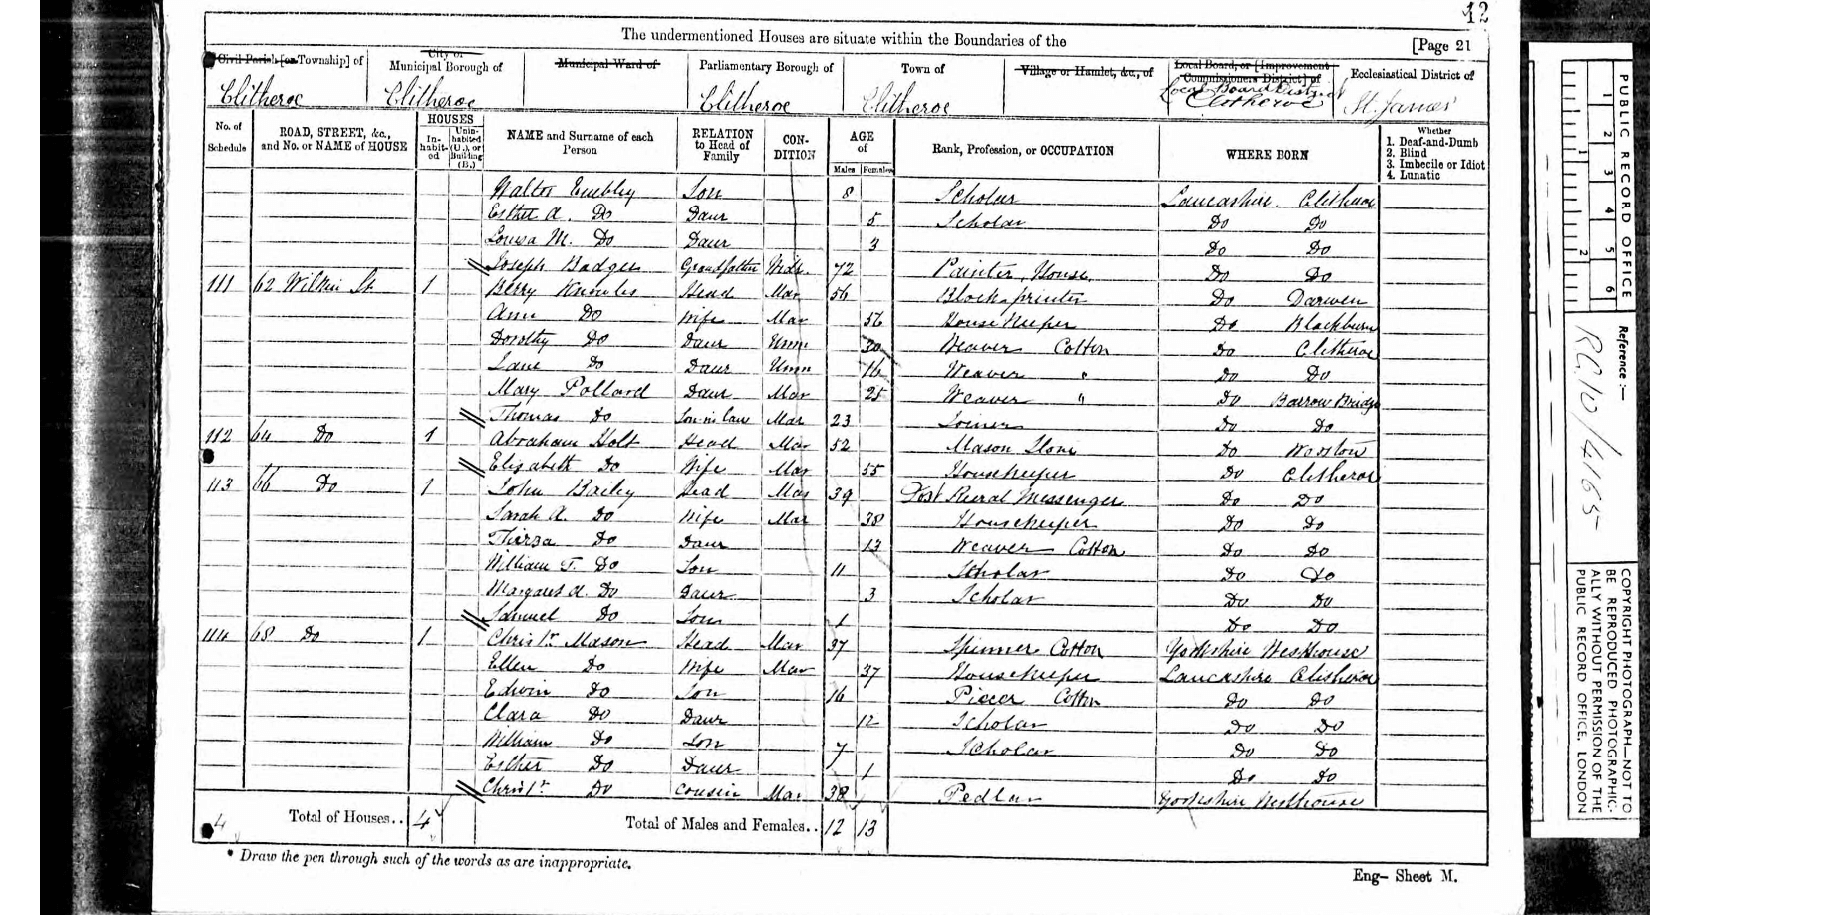 12
The undermentioned Houses are situate within the Boundaries of the [Page 21
Civil Parish [or Township] of City or Municipal Borough of Municipal Ward of Parliamentary Borough of Town of Village or Hamlet, &c., of Local Board, or [Improvement Commissioners District] of Ecclesiastical District of
Clitheroe Clitheroe Clitheroe Clitheroe Local Board District Clitheroe St. James
No. of Schedule ROAD, STREET, &c., and No. or NAME of HOUSE HOUSES In-habit-ed Unin-habited (U.), or Building (B.) NAME and Surname of each Person RELATION to Head of Family CON-DITION AGE of Males Females Rank, Profession, or OCCUPATION WHERE BORN Whether 1. Deaf-and-Dumb 2. Blind 3. Imbecile or Idiot 4. Lunatic
Walter Embley Son 8 Scholar Lancashire Clitheroe
Esther A. Do Daur 5 Scholar Do Do
Louisa M. Do Daur 3 Do Do
Joseph Badger Grandfather Widr. 72 Painter, House Do Do
111 62 Wilkin St 1 Berry Knowles Head Mar 56 Block printer Do Darwen
Ann Do Wife Mar 56 House Keeper Do Blackburn
Dorothy Do Daur Unm 30 Weaver Cotton Do Clitheroe
Jane Do Daur Unm 16 Weaver " Do Do
Mary Pollard Daur Mar 25 Weaver " Do Barrow Bridge
Thomas Do Son in law Mar 23 Joiner Do Do
112 64 Do 1 Abraham Holt Head Mar 52 Mason Stone Do Worston
Elizabeth Do Wife Mar 55 Housekeeper Do Clitheroe
113 66 Do 1 John Bailey Head Mar 39 Post Rural Messenger Do Do
Sarah A. Do Wife Mar 38 Housekeeper Do Do
Thirza Do Daur 13 Weaver Cotton Do Do
William T. Do Son 11 Scholar Do Do
Margaret A. Do Daur 3 Scholar Do Do
Samuel Do Son 1 Do Do
114 68 Do 1 Christr. Mason Head Mar 37 Spinner Cotton Yorkshire Westhouse
Ellen Do Wife Mar 37 Housekeeper Lancashire Clitheroe
Edwin Do Son 16 Piecer Cotton Do Do
Clara Do Daur 12 Scholar Do Do
William Do Son 7 Scholar Do Do
Esther Do Daur 1 Do Do
Christr. Do Cousin Mar 38 Pedlar Yorkshire Westhouse
4 Total of Houses.. 4 Total of Males and Females.. 12 13
* Draw the pen through such of the words as are inappropriate.
Eng- Sheet M.
PUBLIC RECORD OFFICE
1 2 3 4 5 6
1 2
Reference :-
RG10/4165
COPYRIGHT PHOTOGRAPH-NOT TO BE REPRODUCED PHOTOGRAPHIC-ALLY WITHOUT PERMISSION OF THE PUBLIC RECORD OFFICE, LONDON